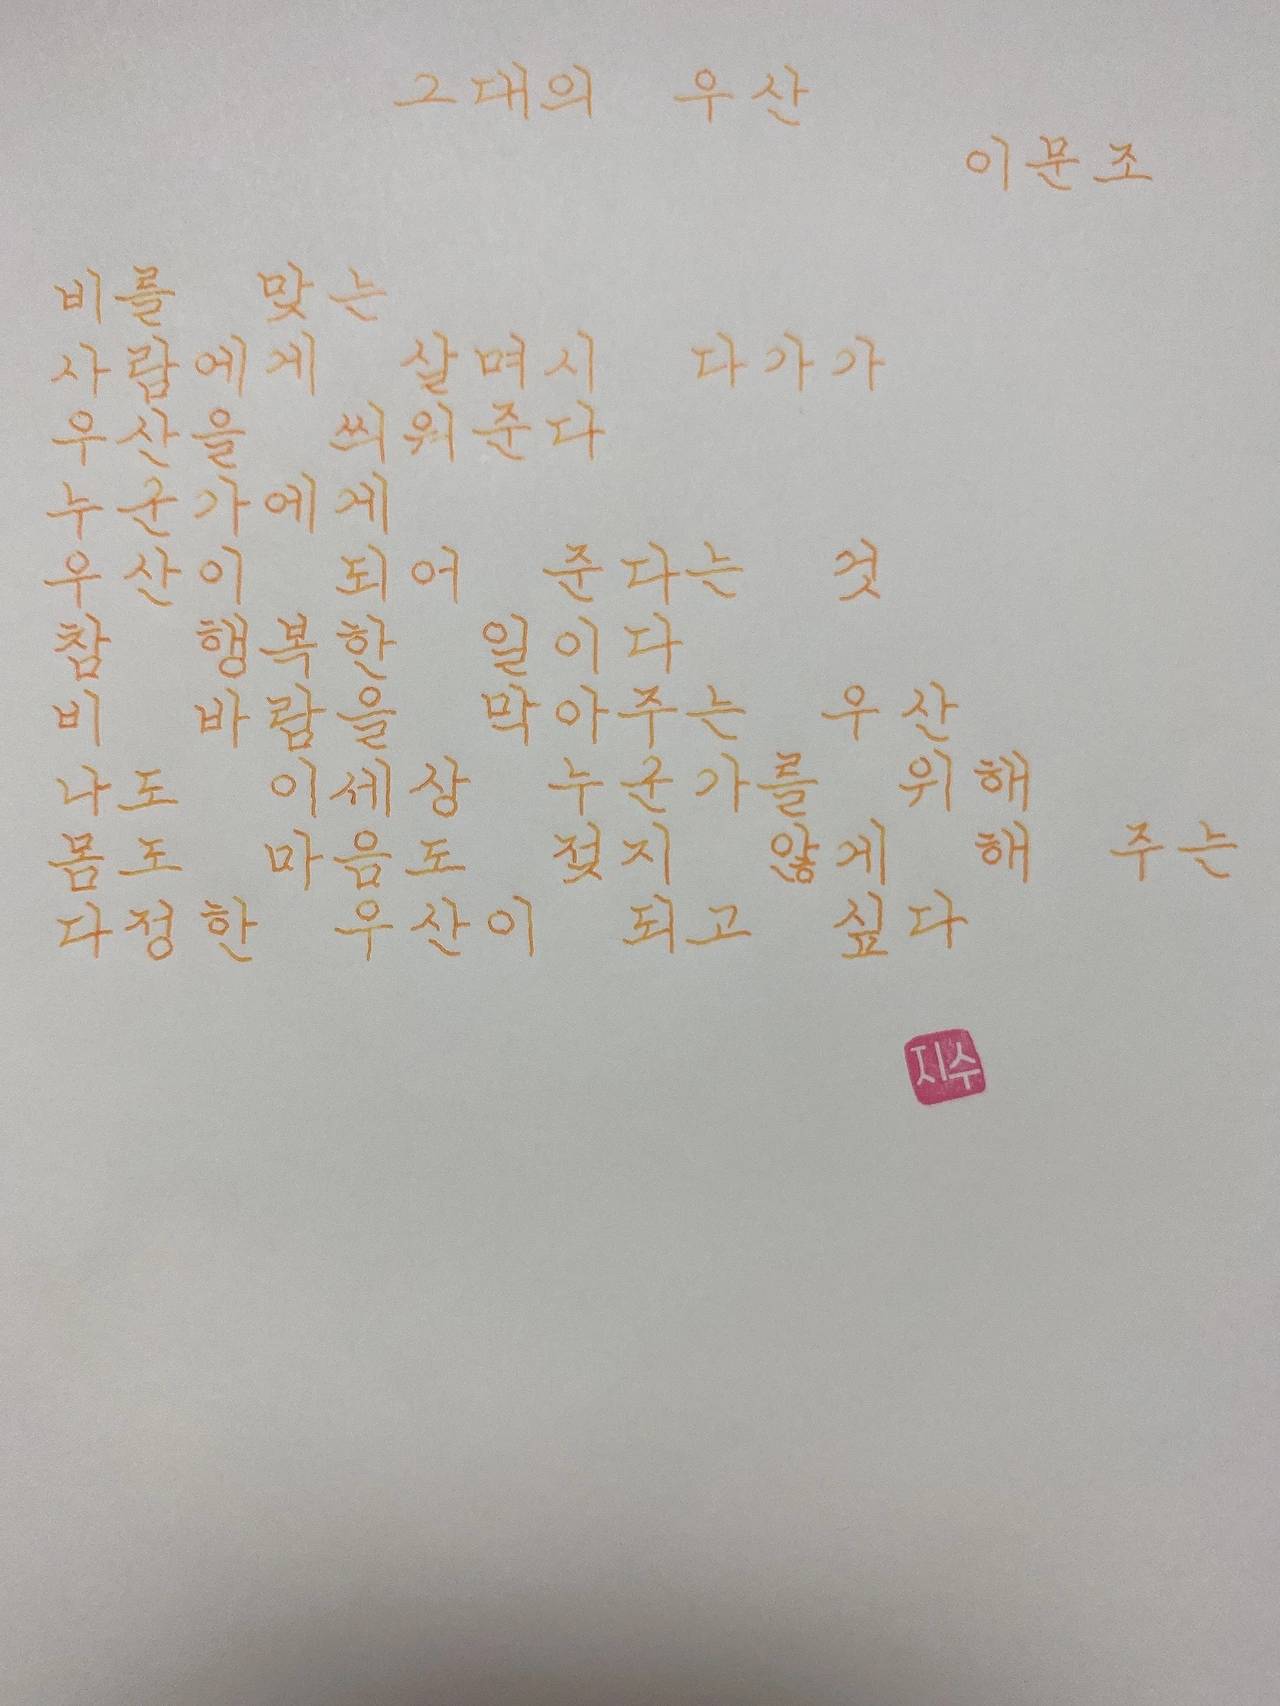 그대의 우산
이문조
비를 맞는
사람에게 살며시 다가가
우산을 씌워준다
누군가에게
우산이 되어 준다는 것
참 행복한 일이다
비 바람을 막아주는 우산
나도 이세상 누군가를 위해
몸도 마음도 젖지 않게 해 주는
다정한 우산이 되고 싶다
지수